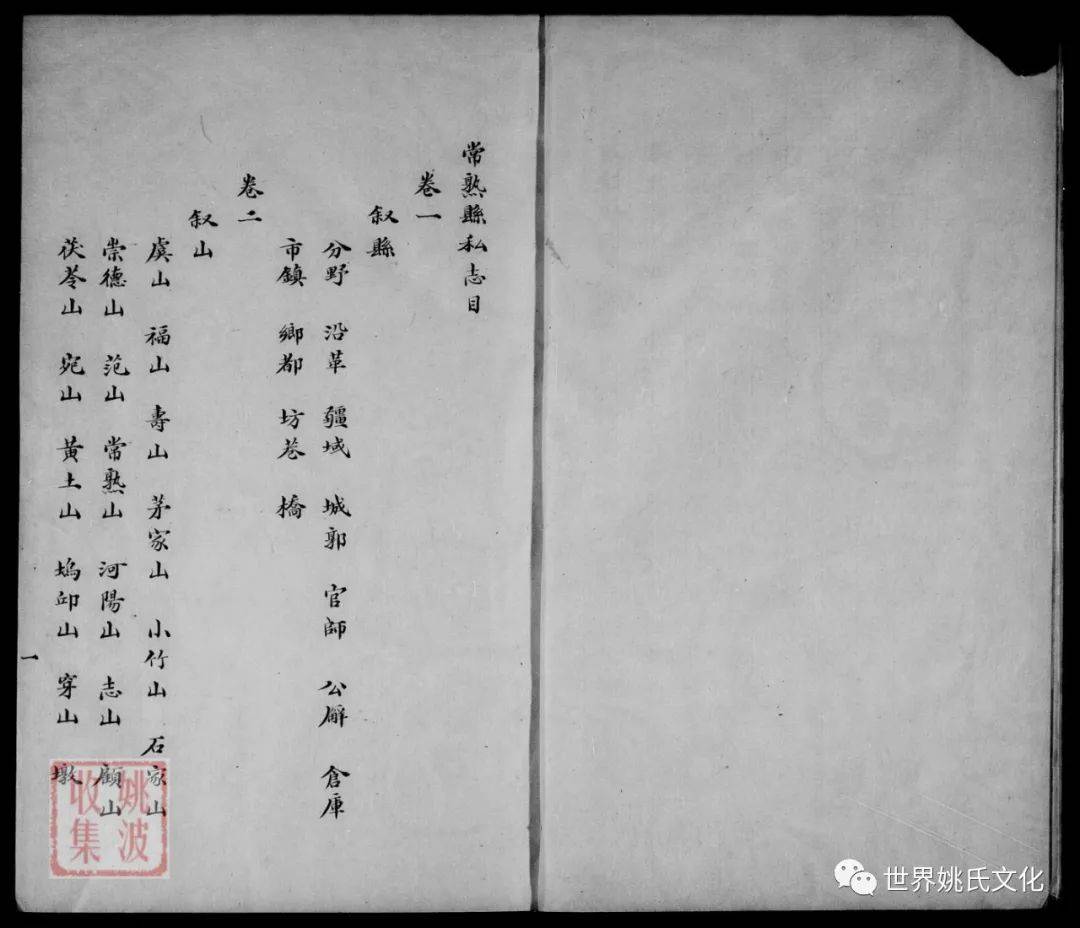 常熟縣私志目
卷一
叙縣
分野 沿革 疆域 城郭 官師 公廨 倉庫
市鎮 鄉都 坊巷 橋
卷二
叙山
虞山 福山 壽山 茅家山 小竹山 石家山
崇德山 范山 常熟山 河陽山 志山 顧山
茯苓山 宛山 黃土山 塢邱山 穿山 墩
一
姚波
收集
世界姚氏文化